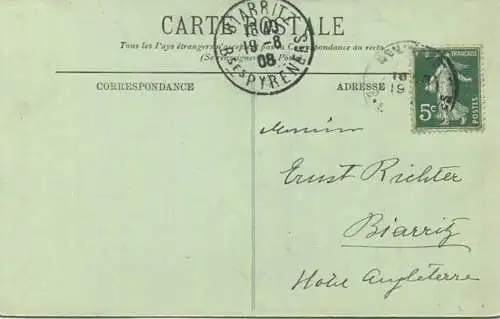 CARTE POSTALE
Tous les Pays étrangers n'acceptent pas la Correspondance au recto
(Se renseigner à la Poste)
BIARRITZ
18 45
19 - 8
08
BSES PYRENEES
CORRESPONDANCE
ADRESSE
18
19
FRANÇAISE
5c
POSTES
Monsieur
Ernst Richter
Biarritz
Hotel Angleterre